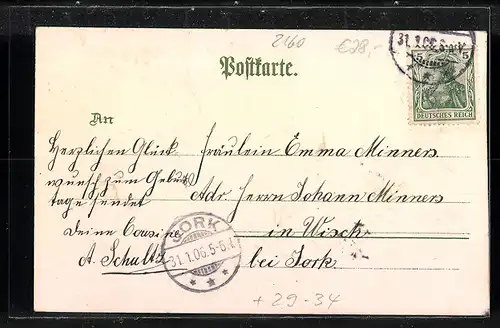 2160
€28,-
31.1.06.
5 5
DEUTSCHES REICH
Postkarte.
An
Herzlichen Glück
wunsch zum Geburts
tage sendet
Deine Cousine
A. Schult
Fräulein Emma Minners
Adr. Herrn Johann Minners
in Wisch
bei Jork.
JORK
31.1.06.5-6.N.
+ 29-34